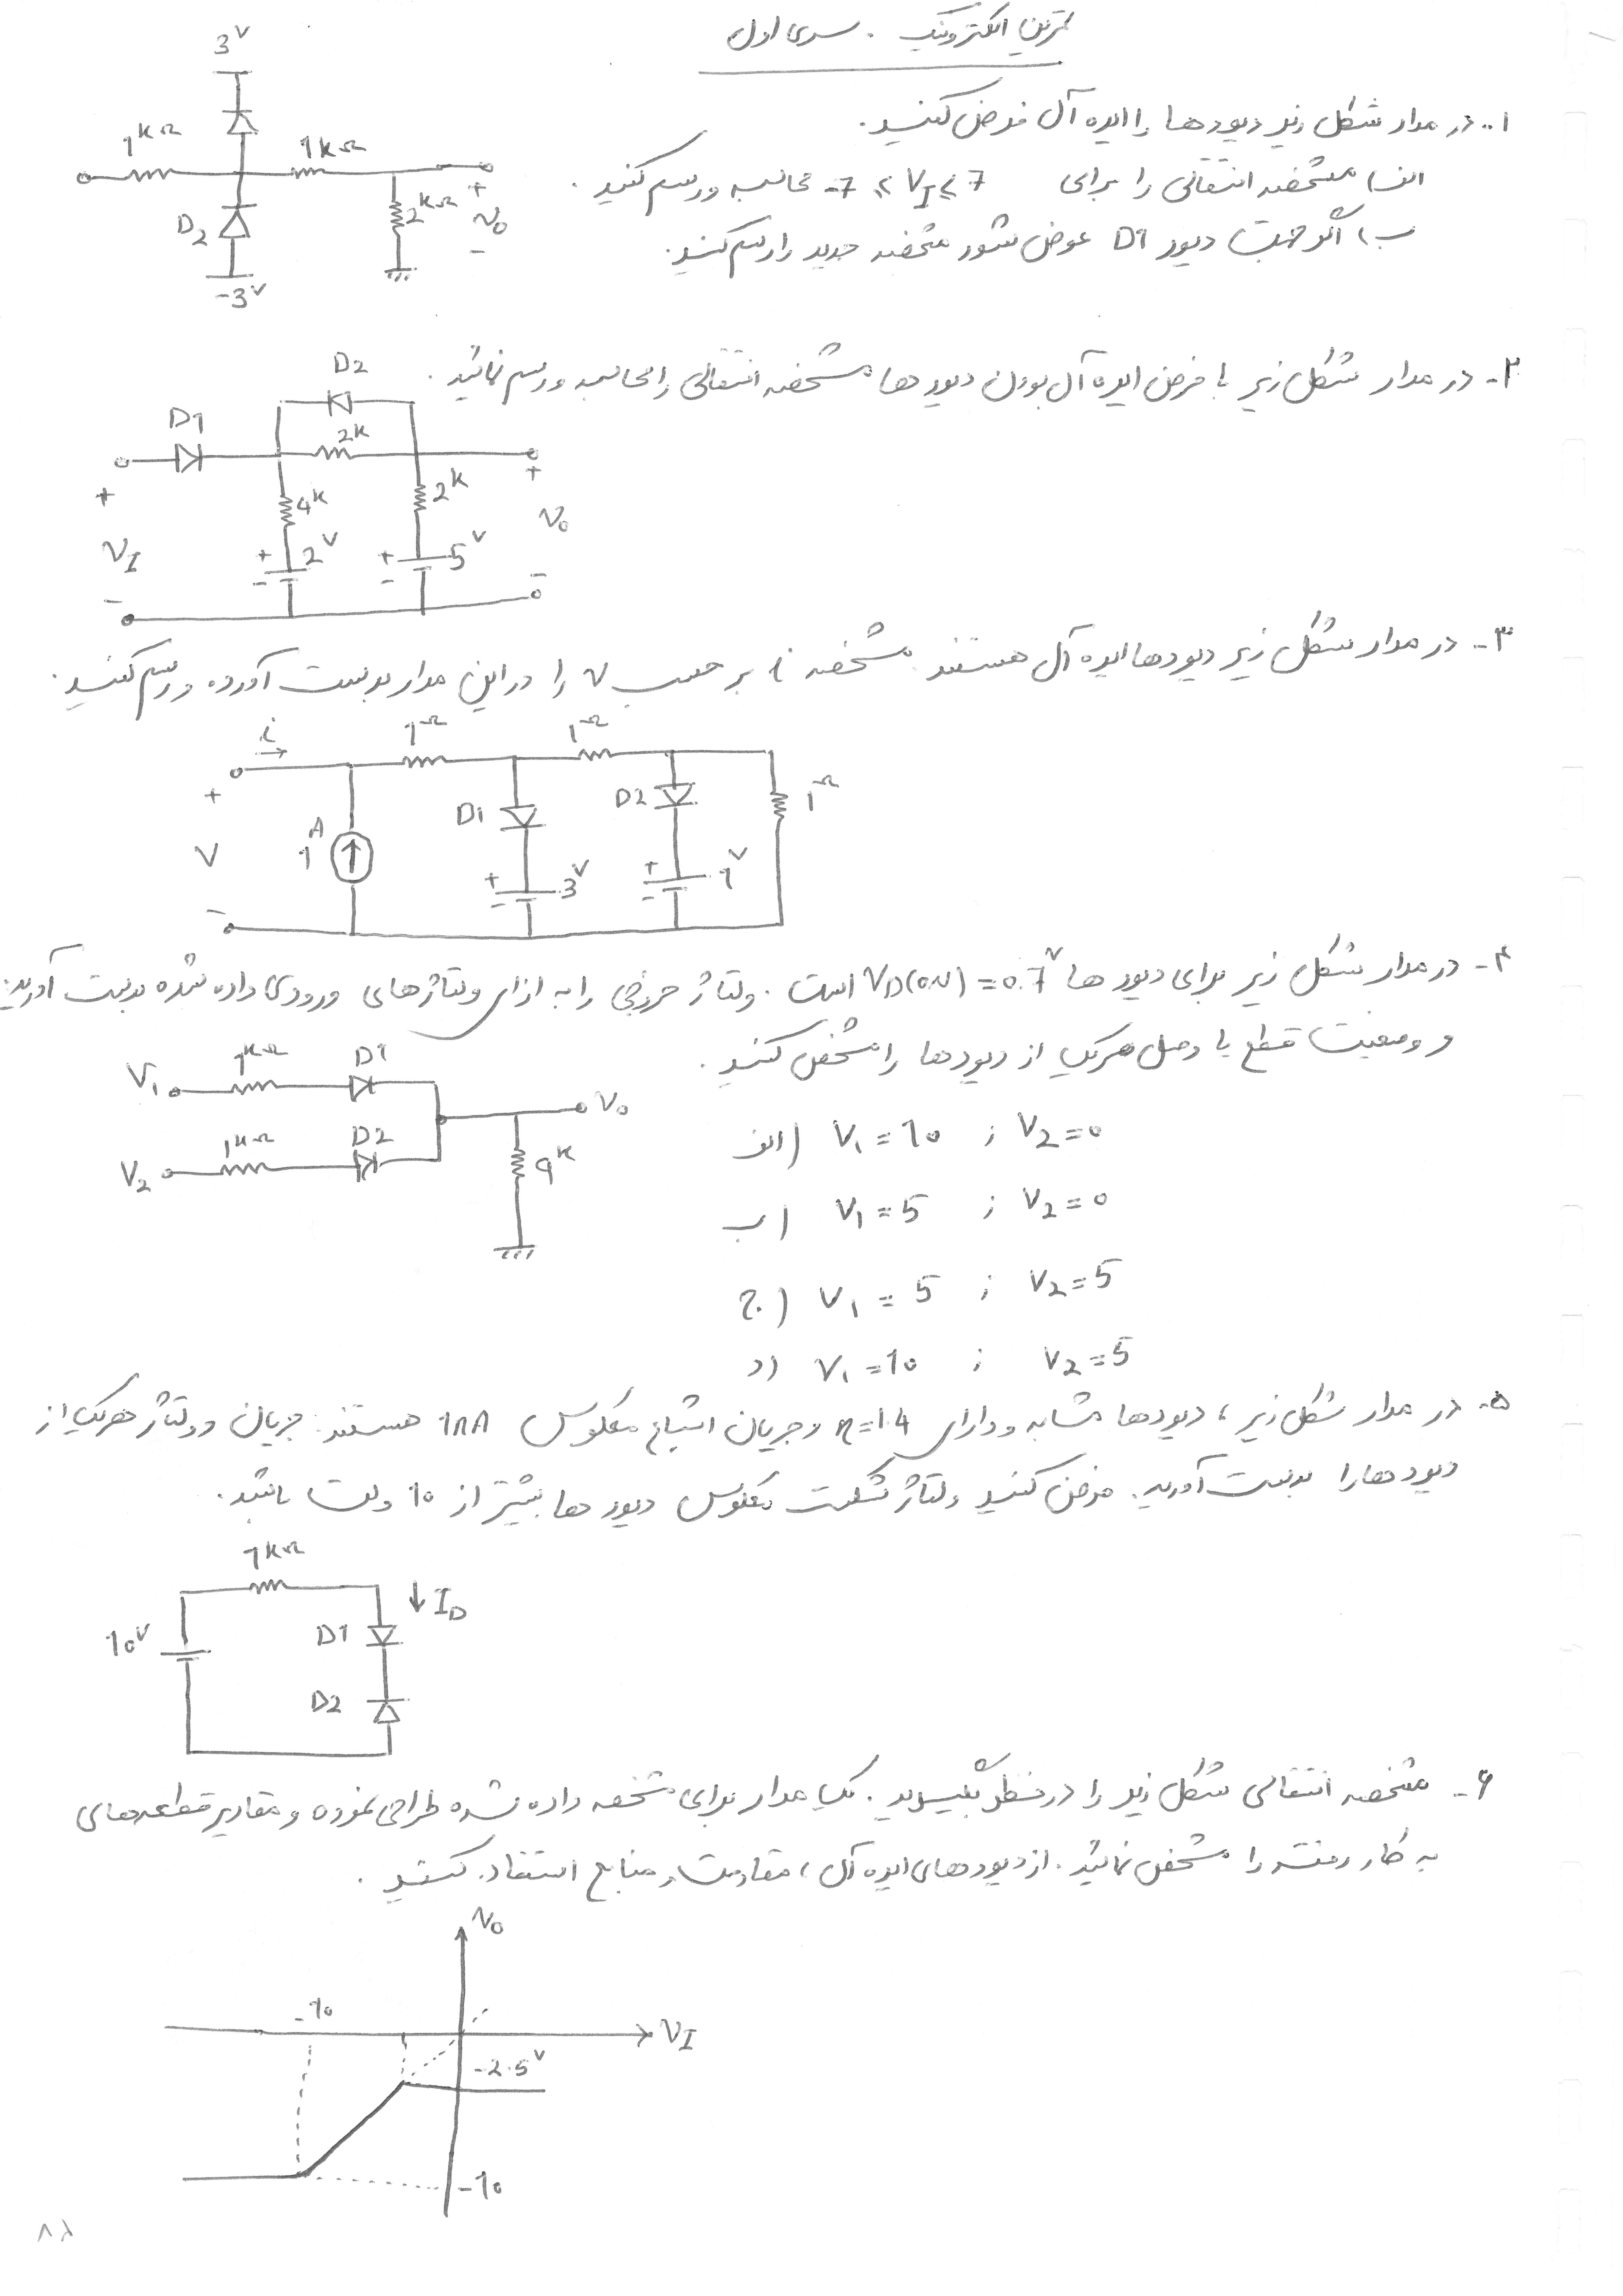 تمرین الکترونیک . سری اول
۱.. در مدار شکل زیر دیودها را ایده آل فرض کنید.
الف) مشخصه انتقالی را برای -7 ≤ V_I ≤ 7 محاسبه و رسم کنید .
ب) اگر جهت دیود D1 عوض شود مشخصه جدید را رسم کنید.
3V
1kΩ
1kΩ
2kΩ
+
v0
-
D2
-3V
۲- در مدار شکل زیر با فرض ایده آل بودن دیودها مشخصه انتقالی را محاسبه و رسم نمائید .
D2
D1
2k
4k
2k
+
VI
-
+
-
2V
+
-
5V
+
v0
-
۳- در مدار شکل زیر دیودها ایده آل هستند مشخصه i بر حسب v را در این مدار بدست آورده و رسم کنید.
i
1Ω
1Ω
1Ω
+
V
-
1A
D1
D2
+
-
3V
+
-
1V
۴- در مدار شکل زیر برای دیودها VD(ON) = 0.7V است . ولتاژ خروجی را به ازای ولتاژهای ورودی داده شده بدست آورید
و وضعیت قطع یا وصل هریک از دیودها را مشخص کنید .
V1
1kΩ
D1
V0
V2
1kΩ
D2
9k
الف) V1 = 10 ; V2 = 0
ب) V1 = 5 ; V2 = 0
ج) V1 = 5 ; V2 = 5
د) V1 = 10 ; V2 = 5
۵- در مدار شکل زیر ، دیودها مشابه و دارای n=1.4 و جریان اشباع معکوس 1nA هستند. جریان و ولتاژ هریک از
دیودها را بدست آورید. فرض کنید ولتاژ شکست معکوس دیودها بیشتر از 10 ولت باشد .
1kΩ
ID
10V
D1
D2
۶- مشخصه انتقالی شکل زیر را در نظر بگیرید . یک مدار برای مشخصه داده شده طراحی نموده و مقادیر قطعه های
به کار رفته را مشخص نمائید . از دیودهای ایده آل ، مقاومت و منابع استفاده کنید .
v0
-10
VI
-2.5V
-10